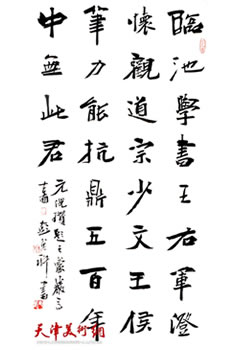 臨池學書王右軍澄
懷觀道宗少文王侯
筆力能抗鼎五百年
中無此君
元倪瓚題王蒙
書
天津美術網